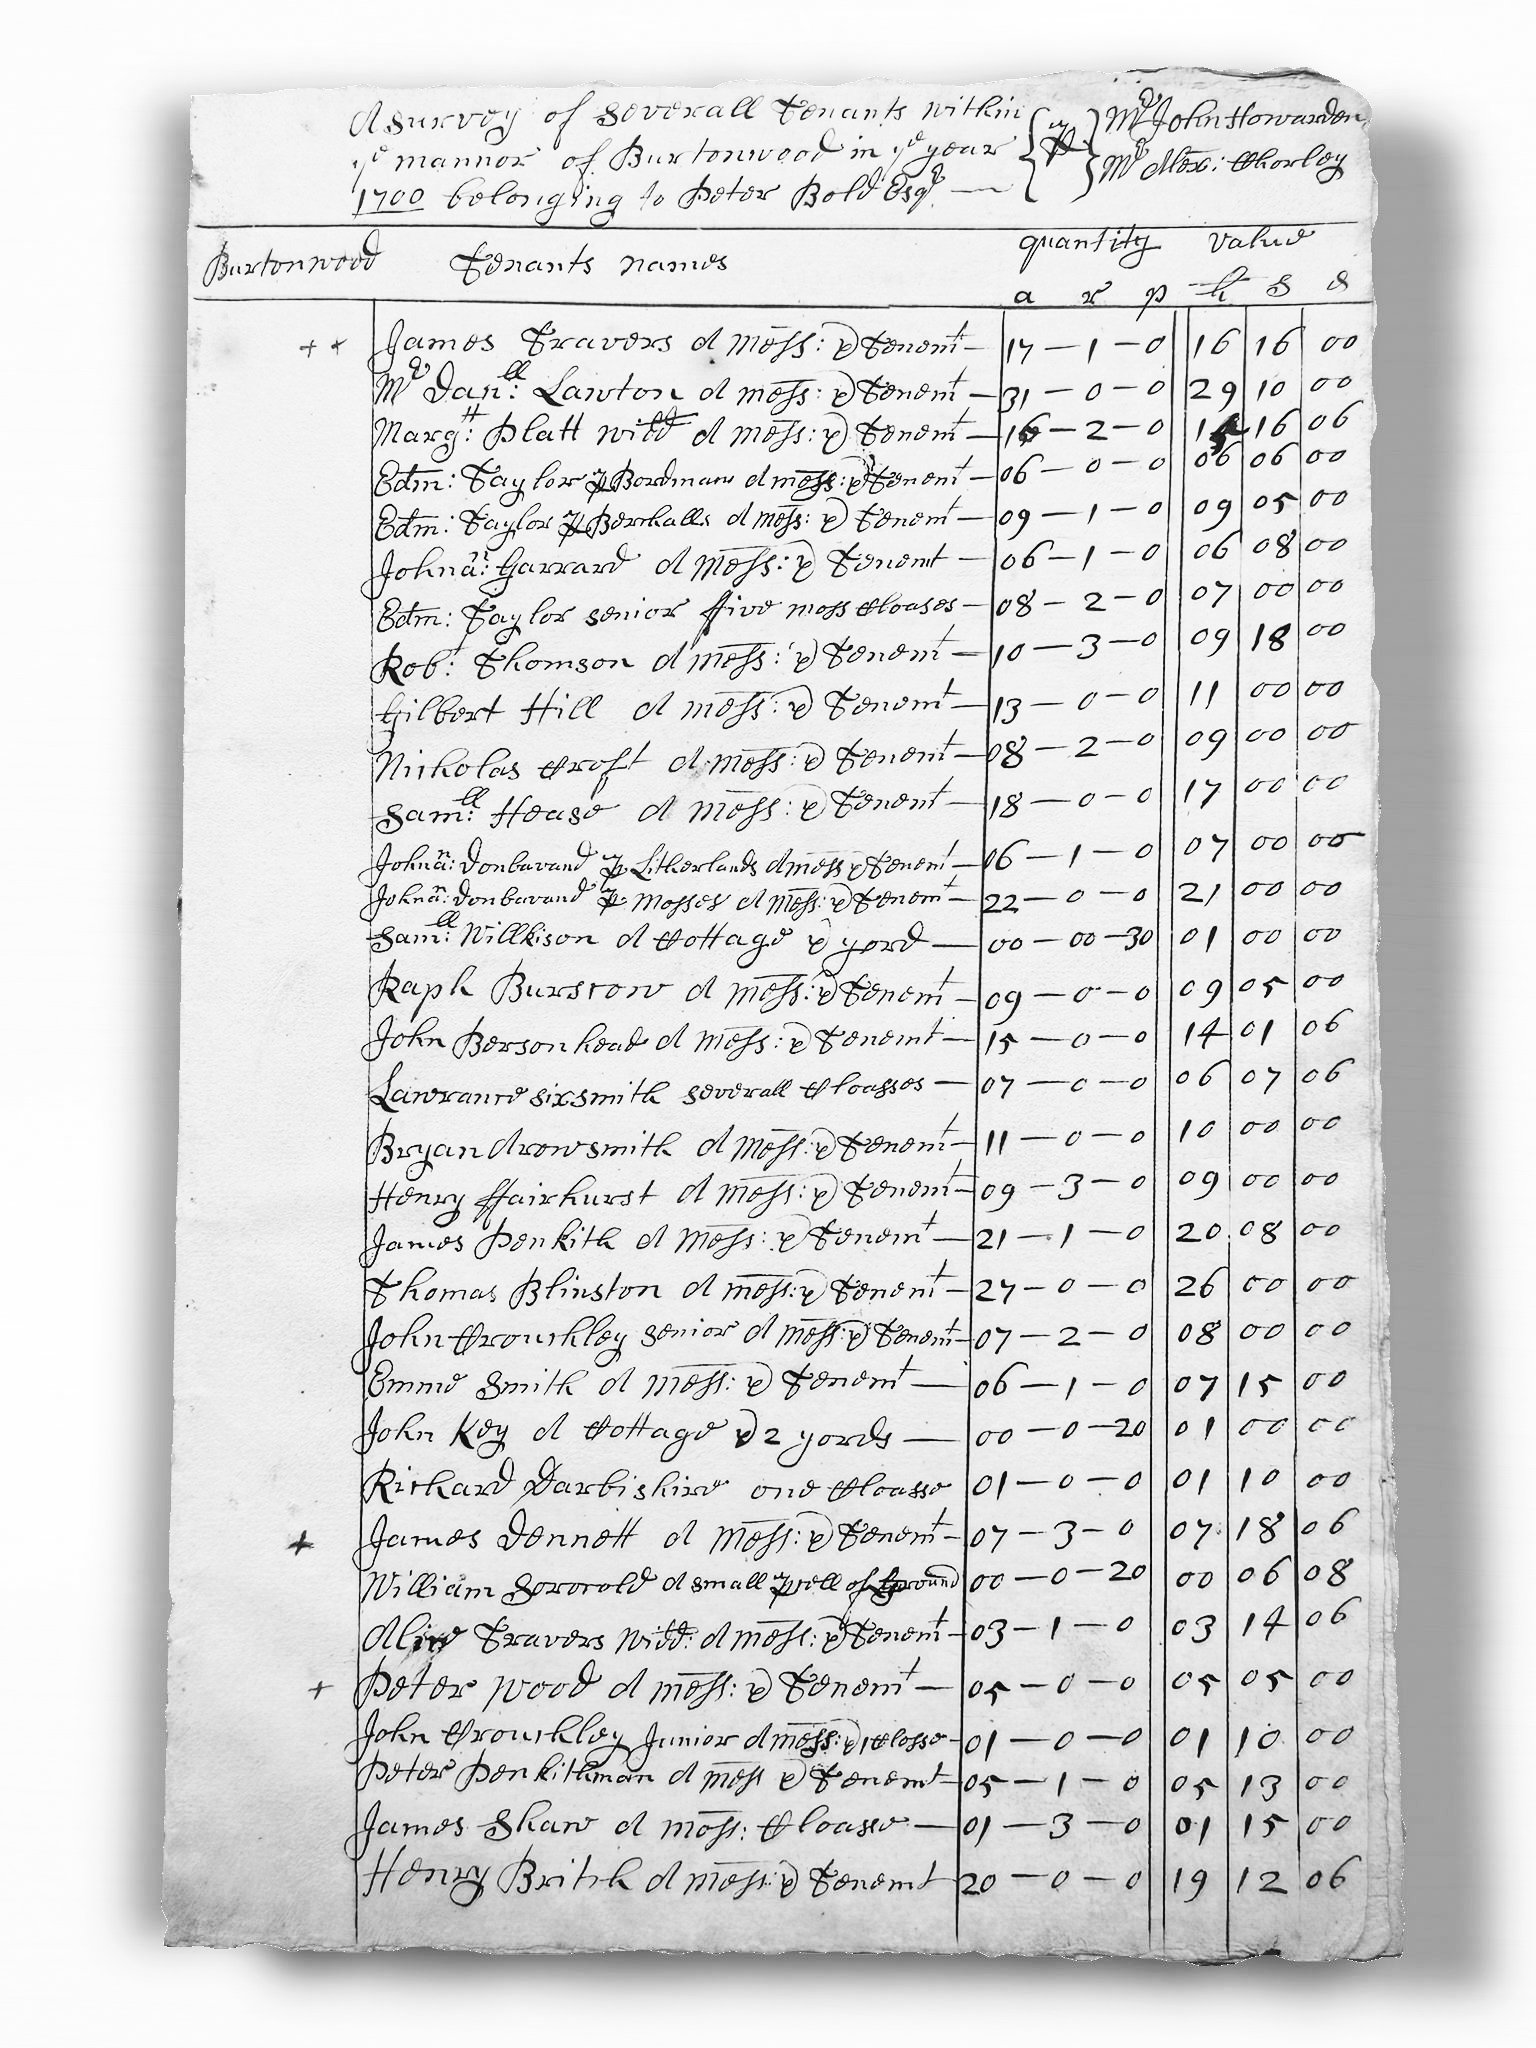 A survey of severall Tenants within
ye mannor of Burtonwood in ye year
1700 belonging to Peter Bold Esqr
{ p } Mr John Howarden
Mr Alex: Chorley
Burtonwood Tenants names quantity value
a r p li s d
++ James Travers A Mess: & Tenemt — 17 — 1 — 0 16 16 00
Mr Danll: Lawton A Mess: & Tenemt — 31 — 0 — 0 29 10 00
Margtt: Platt widd A Mess: & Tenemt — 16 — 2 — 0 15 16 06
Edm: Taylor p Bordmans A Mess: & Tenemt — 06 — 0 — 0 06 06 00
Edm: Taylor p Berchalls A Mess: & Tenemt — 09 — 1 — 0 09 05 00
Johnan: Garrard A Mess: & Tenemt — 06 — 1 — 0 06 08 00
Edm: Taylor senior ffive moss Cloases — 08 — 2 — 0 07 00 00
Robt: Thomson A Mess: & Tenemt — 10 — 3 — 0 09 18 00
Gilbert Hill A Mess: & Tenemt — 13 — 0 — 0 11 00 00
Nicholas Croft A Mess: & Tenemt — 08 — 2 — 0 09 00 00
Samll: Hease A Mess: & Tenemt — 18 — 0 — 0 17 00 00
Johnan: Donbavand p Litherlands A Mess & Tenemt — 06 — 1 — 0 07 00 00
Johnan: Donbavand p Mosses A Mess: & Tenemt — 22 — 0 — 0 21 00 00
Samll: Willkison A Cottage & yord — 00 — 00 — 30 01 00 00
Raph Burscow A Mess: & Tenemt — 09 — 0 — 0 09 05 00
John Bersonhead A Mess: & Tenemt — 15 — 0 — 0 14 01 06
Lawrance Sixsmith severall Cloasses — 07 — 0 — 0 06 07 06
Bryan Arowsmith A Mess: & Tenemt — 11 — 0 — 0 10 00 00
Henry ffairhurst A Mess: & Tenemt — 09 — 3 — 0 09 00 00
James Penkith A Mess: & Tenemt — 21 — 1 — 0 20 08 00
Thomas Blinston A Mess: & Tenemt — 27 — 0 — 0 26 00 00
John Crouchley senior A Mess: & Tenemt — 07 — 2 — 0 08 00 00
Emme Smith A Mess: & Tenemt — 06 — 1 — 0 07 15 00
John Key A Cottage & 2 yords — 00 — 0 — 20 01 00 00
Richard Darbishire one Cloasse 01 — 0 — 0 01 10 00
+ James Dennett A Mess: & Tenemt — 07 — 3 — 0 07 18 06
William Sorocold A small pcell of Ground 00 — 0 — 20 00 06 08
Alice Travers Widd: A Mess: & Tenemt — 03 — 1 — 0 03 14 06
+ Peter Wood A Mess: & Tenemt — 05 — 0 — 0 05 05 00
John Crouchley Junior A Mess: & 1 Closse — 01 — 0 — 0 01 10 00
Peter Penkithman A Mess & Tenemt — 05 — 1 — 0 05 13 00
James Shaw A Moss: Cloasse — 01 — 3 — 0 01 15 00
Henry Britch A Mess: & Tenemt 20 — 0 — 0 19 12 06